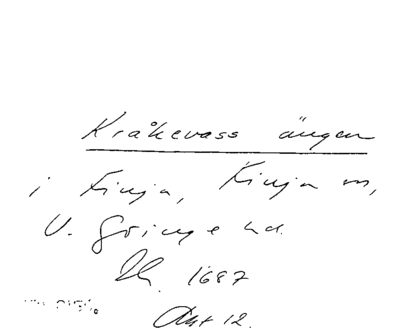 Kråkevass ängen
i Finja, Finja sn,
V. Göinge hd.
Lh. 1687
Akt 12.